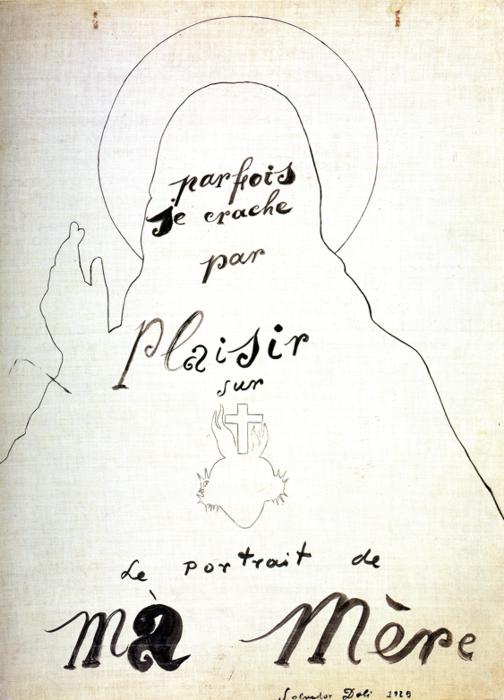 parfois
je crache
par
Plaisir
sur
Le portrait de
Mà Mère
Salvador Dali 1929